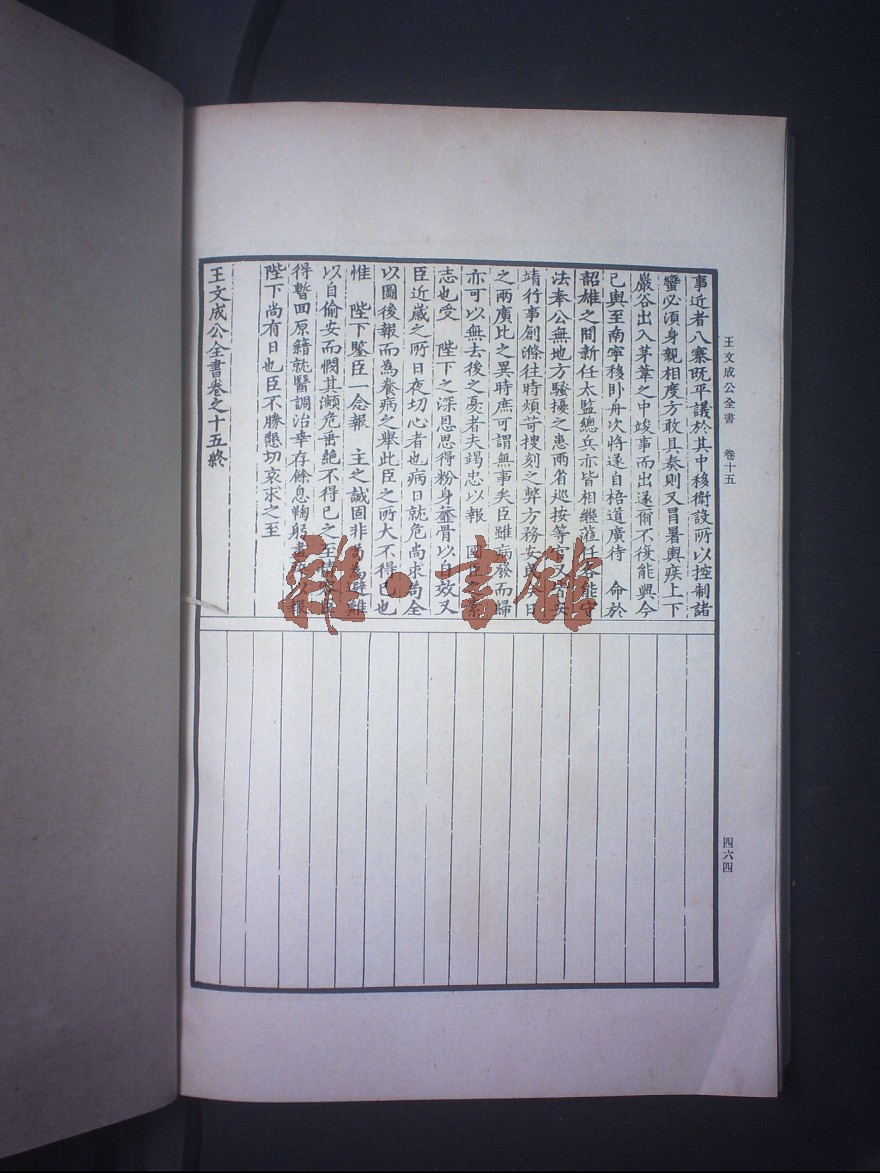 王文成公全書　卷十五
四六四
事近者八寨既平議於其中移衛設所以控制諸
蠻必須身親相度方敢具奏則又冒暑輿疾上下
巖谷出入茅葦之中竣事而出遂爾不復能興今
已輿至南寧移卧舟次將遂自梧道廣待　命於
韶雄之間新任太監總兵亦皆相繼蒞任各能守
法奉公無地方騷擾之患兩省巡按等官
靖行事創滌往時煩苛搜刻之弊方務安
之兩廣比之異時庶可謂無事矣臣雖病發而歸
亦可以無去後之憂者夫竭忠以報　國
志也受　陛下之深恩思得粉身虀骨以自效又
臣近歲之所日夜切心者也病日就危尚求苟全
以圖後報而為養病之舉此臣之所大不得已也
惟　陛下鑒臣一念報　主之誠固非苟為避難
以自偷安而憫其瀕危垂絕不得已之至
得暫回原籍就醫調治幸存餘息鞠躬盡
陛下尚有日也臣不勝懇切哀求之至
王文成公全書卷之十五終
雜·書館